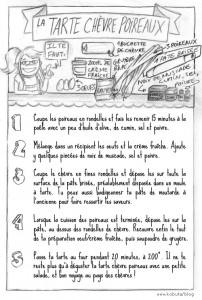 LA TARTE CHÈVRE POIREAUX
IL TE
FAUT:
1 BÛCHETTE
DE CHÈVRE
3 POIREAUX
1 PÂTE BRISÉE
GRUYÈRE
RÂPÉ
20CL DE
CRÈME
FRAÎCHE
3 OEUFS
NOIX DE MUSCADE,
CUMIN, SEL,
POIVRE
1 Coupe les poireaux en rondelles et fais les revenir 15 minutes à la
poêle avec un peu d'huile d'olive, de cumin, sel et poivre.
2 Mélange dans un récipient les oeufs et la crème fraîche. Ajoute
y quelques pincées de noix de muscade, sel et poivre.
3 Coupe le chèvre en fines rondelles et dépose les sur toute la
surface de la pâte brisée, préalablement disposée dans un moule
à tarte. Tu peux aussi badigeonner la pâte de moutarde à
l'ancienne pour faire ressortir les saveurs.
4 Lorsque la cuisson des poireaux est terminée, dépose les sur la
pâte, au dessus des rondelles de chèvre. Recouvre enfin le tout
de la préparation oeuf/crème fraîche, puis saupoudre de gruyère.
5 Passe ta tarte au four pendant 20 minutes, à 200°. Il ne te
reste plus qu'à déguster ta tarte chèvre poireaux avec une petite
salade, et bon voyage au pays des chèvres !
www.kobutafblog